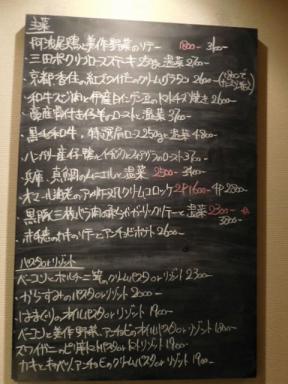 主菜
・阿波尾鶏と美作野菜のソテー 1800- 3100-
・三田ポークリブロースステーキ250gと温菜 2700-
・京都香住、紅ズワイガニのクリームグラタン 2600-
・和牛スジ肉と伊産白インゲン豆のトマトチーズ焼き 2600-
産骨付き仔羊のローストと温菜 3700-
・黒毛和牛、特選肩ロース250gと温菜 4800-
・ハンガリー産仔鴨 ロースト 3700-
・兵庫、真鯛のムニエルと温菜 2500- 3400-
・オマール海老のアメリケーヌ クリームコロッケ 2P1600- 4P2800-
・黒豚 バラ肉の柔らかガーリックソテーと温菜 2300-
3800-
のカキのソテーとアンチョビポテト 2600-
パスタorリゾット
・ベーコンとポルチーニ茸のクリームパスタorリゾット 2300-
・からすみのパスタorリゾット 2000-
・はまぐりのオイルパスタorリゾット 1900-
・ベーコンと美作野菜、アンチョビのオイルパスタorリゾット 1800-
・ズワイガニのトマトパスタorトマトリゾット 1900-
・カキとキャベツ、アンチョビのクリームパスタorリゾット 1900-